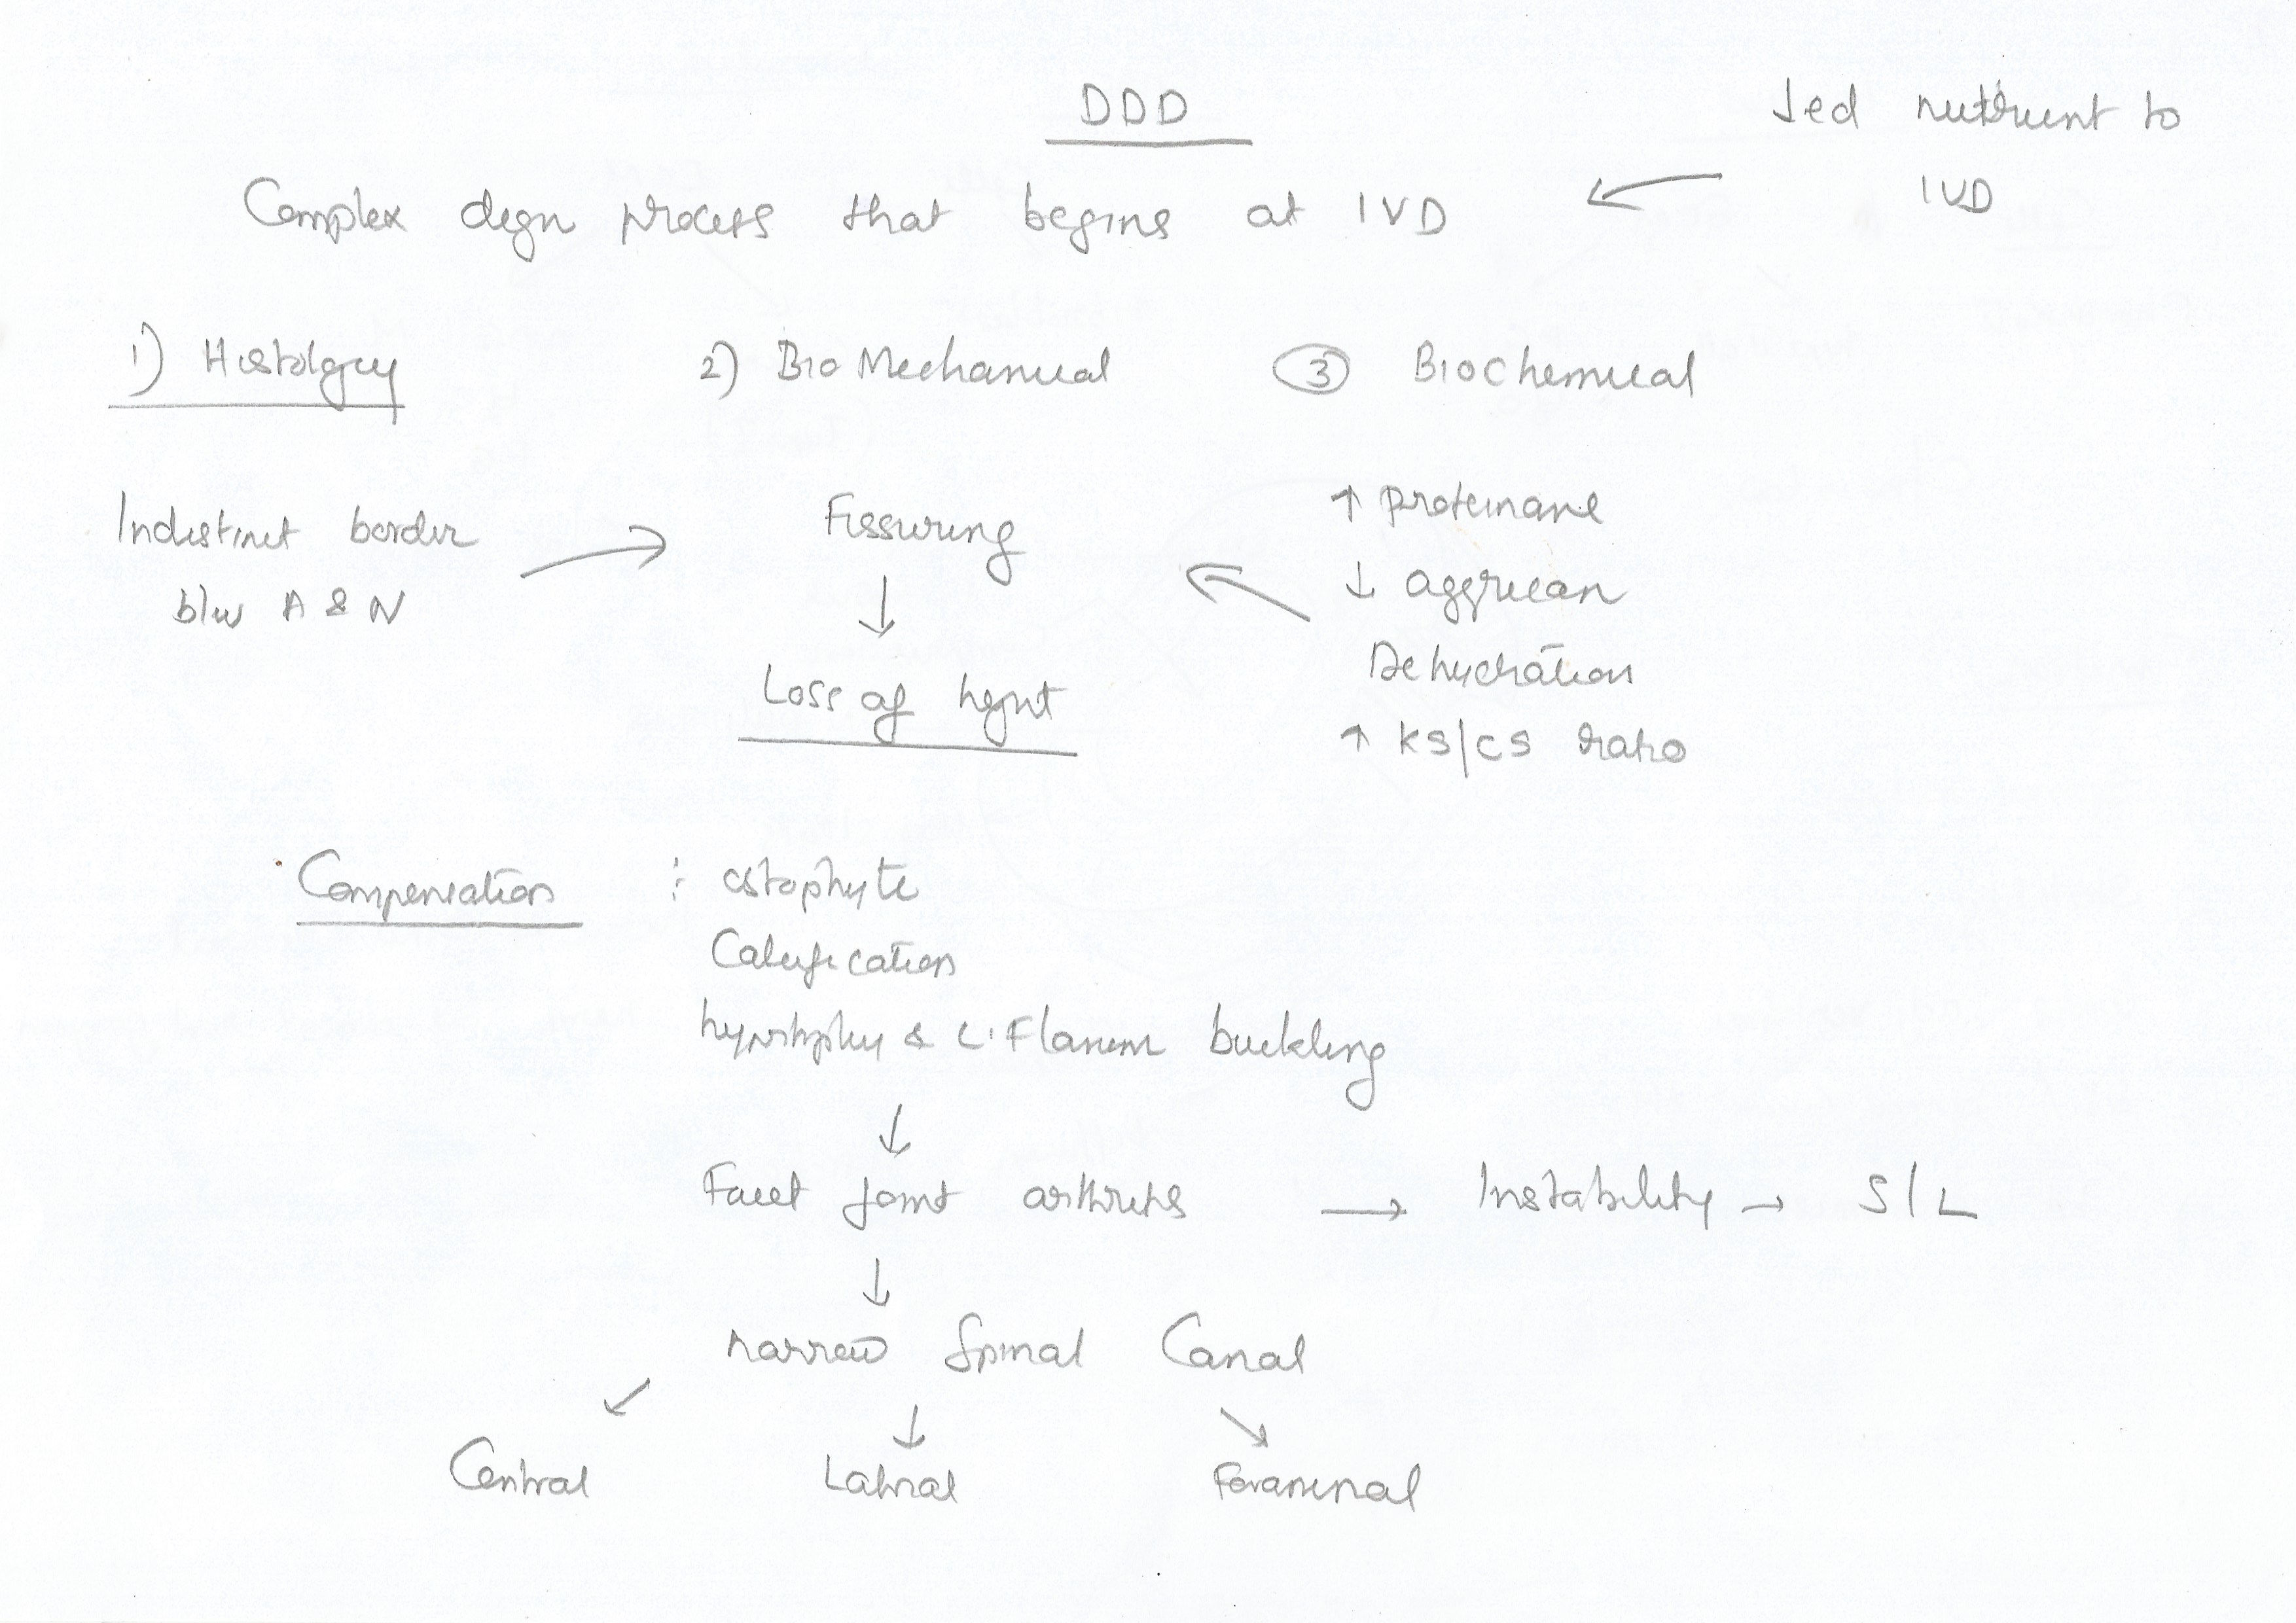 DDD
↓ed nutrient to
IVD
Complex degn process that begins at IVD
1) Histology
2) BioMechanical
3 Biochemical
Indistinct border
b/w A & N
Fissuring
Loss of hgnt
↑ proteinase
↓ aggrecan
Dehydration
↑ KS/CS ratio
Compensation : ostophyte
Calcification
hyprtrophy & L. Flavum buckling
Facet joint arthritis → Instability → S/L
narrow Spinal Canal
Central
Latral
Foraminal